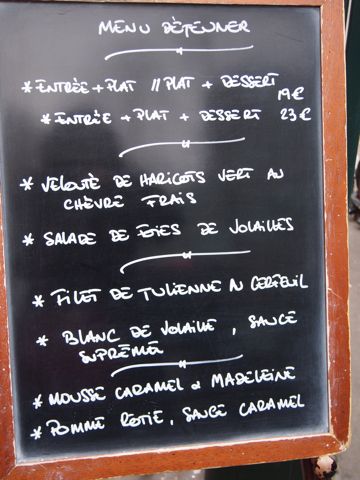 MENU DÉJEUNER
* ENTRÉE + PLAT // PLAT + DESSERT
19€
* ENTRÉE + PLAT + DESSERT 23€
* VELOUTÉ DE HARICOTS VERT AU
CHÈVRE FRAIS
* SALADE DE FOIES DE VOLAILLES
* FILET DE JULIENNE AU CERFEUIL
* BLANC DE VOLAILLE, SAUCE
SUPRÊME
* MOUSSE CARAMEL & MADELEINE
* POMME ROTIE, SAUCE CARAMEL